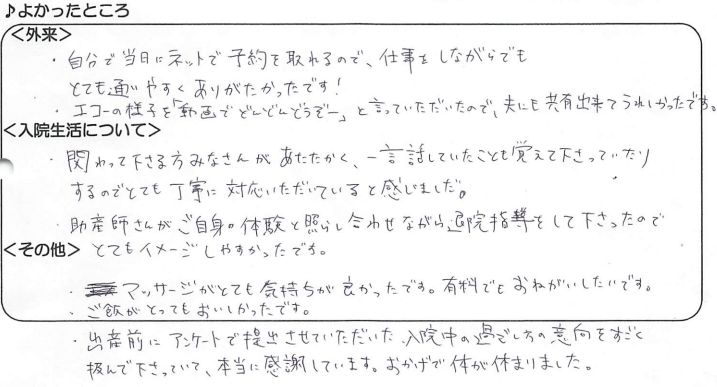 ♪よかったところ
＜外来＞
・自分で当日にネットで予約を取れるので、仕事をしながらでも
とても通いやすくありがたかったです！
・エコーの様子を「動画でどんどんどうぞー」と言っていただいたので、夫にも共有出来てうれしかったです。
＜入院生活について＞
・関わって下さる方みなさんがあたたかく、一言話していたことも覚えて下さっていたり
するのでとても丁寧に対応いただいていると感じました。
・助産師さんがご自身の体験と照らし合わせながら退院指導をして下さったので
＜その他＞ とてもイメージしやすかったです。
・マッサージがとても気持ちが良かったです。有料でもおねがいしたいです。
・ご飯がとってもおいしかったです。
・出産前にアンケートで提出させていただいた入院中の過ごし方の意向をすごく
汲んで下さっていて、本当に感謝しています。おかげで体が休まりました。